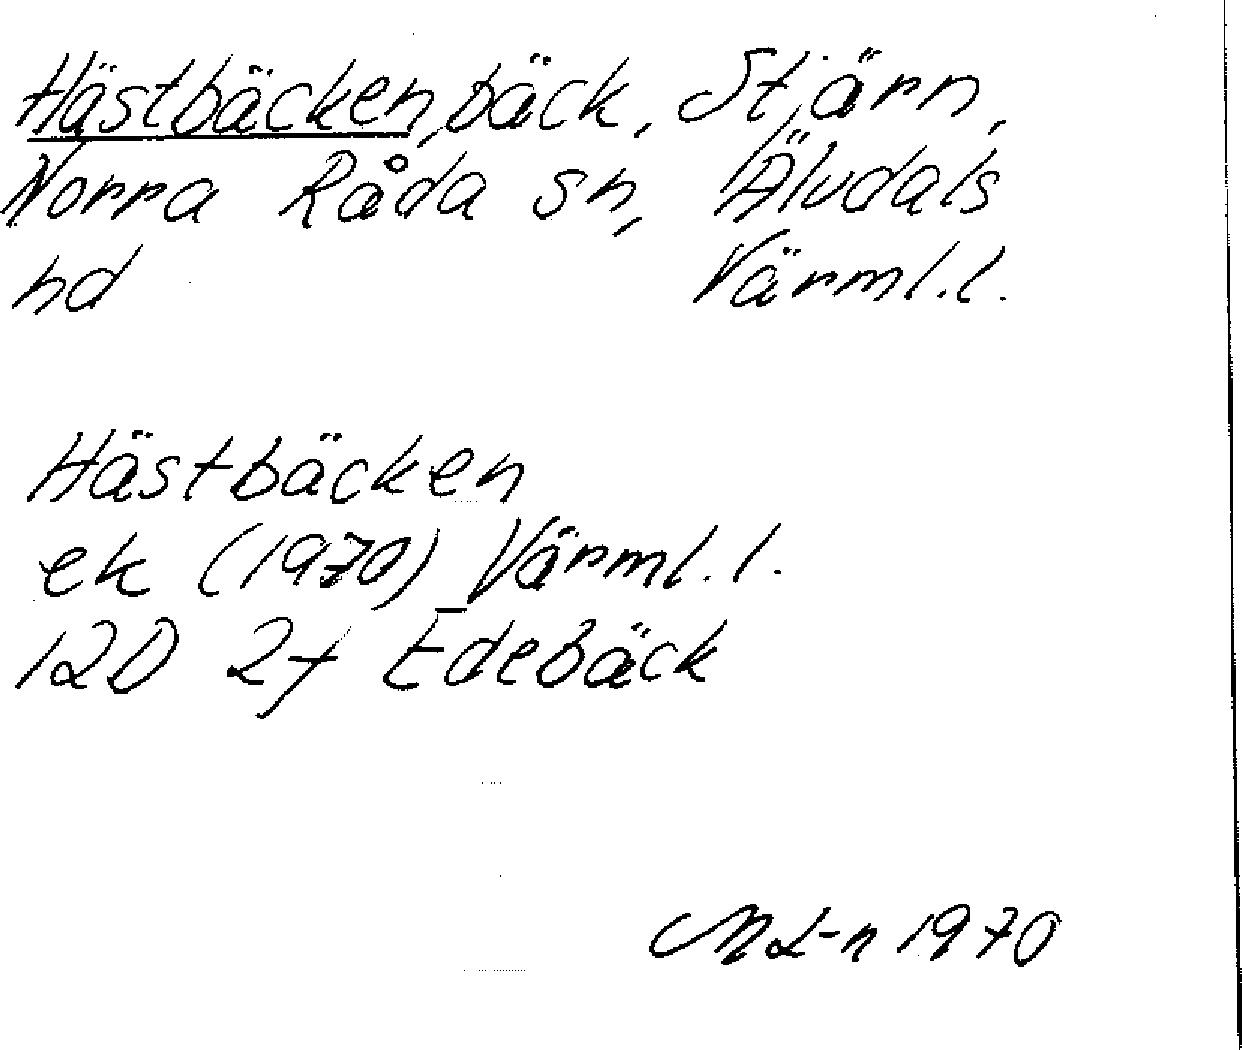 Hästbäcken, bäck, Stjärn,
Norra Råda sn, Älvdals
hd Värml.l.
Hästbäcken
ek (1970) Värml.l.
12D 2f Edebäck
ML-n 1970